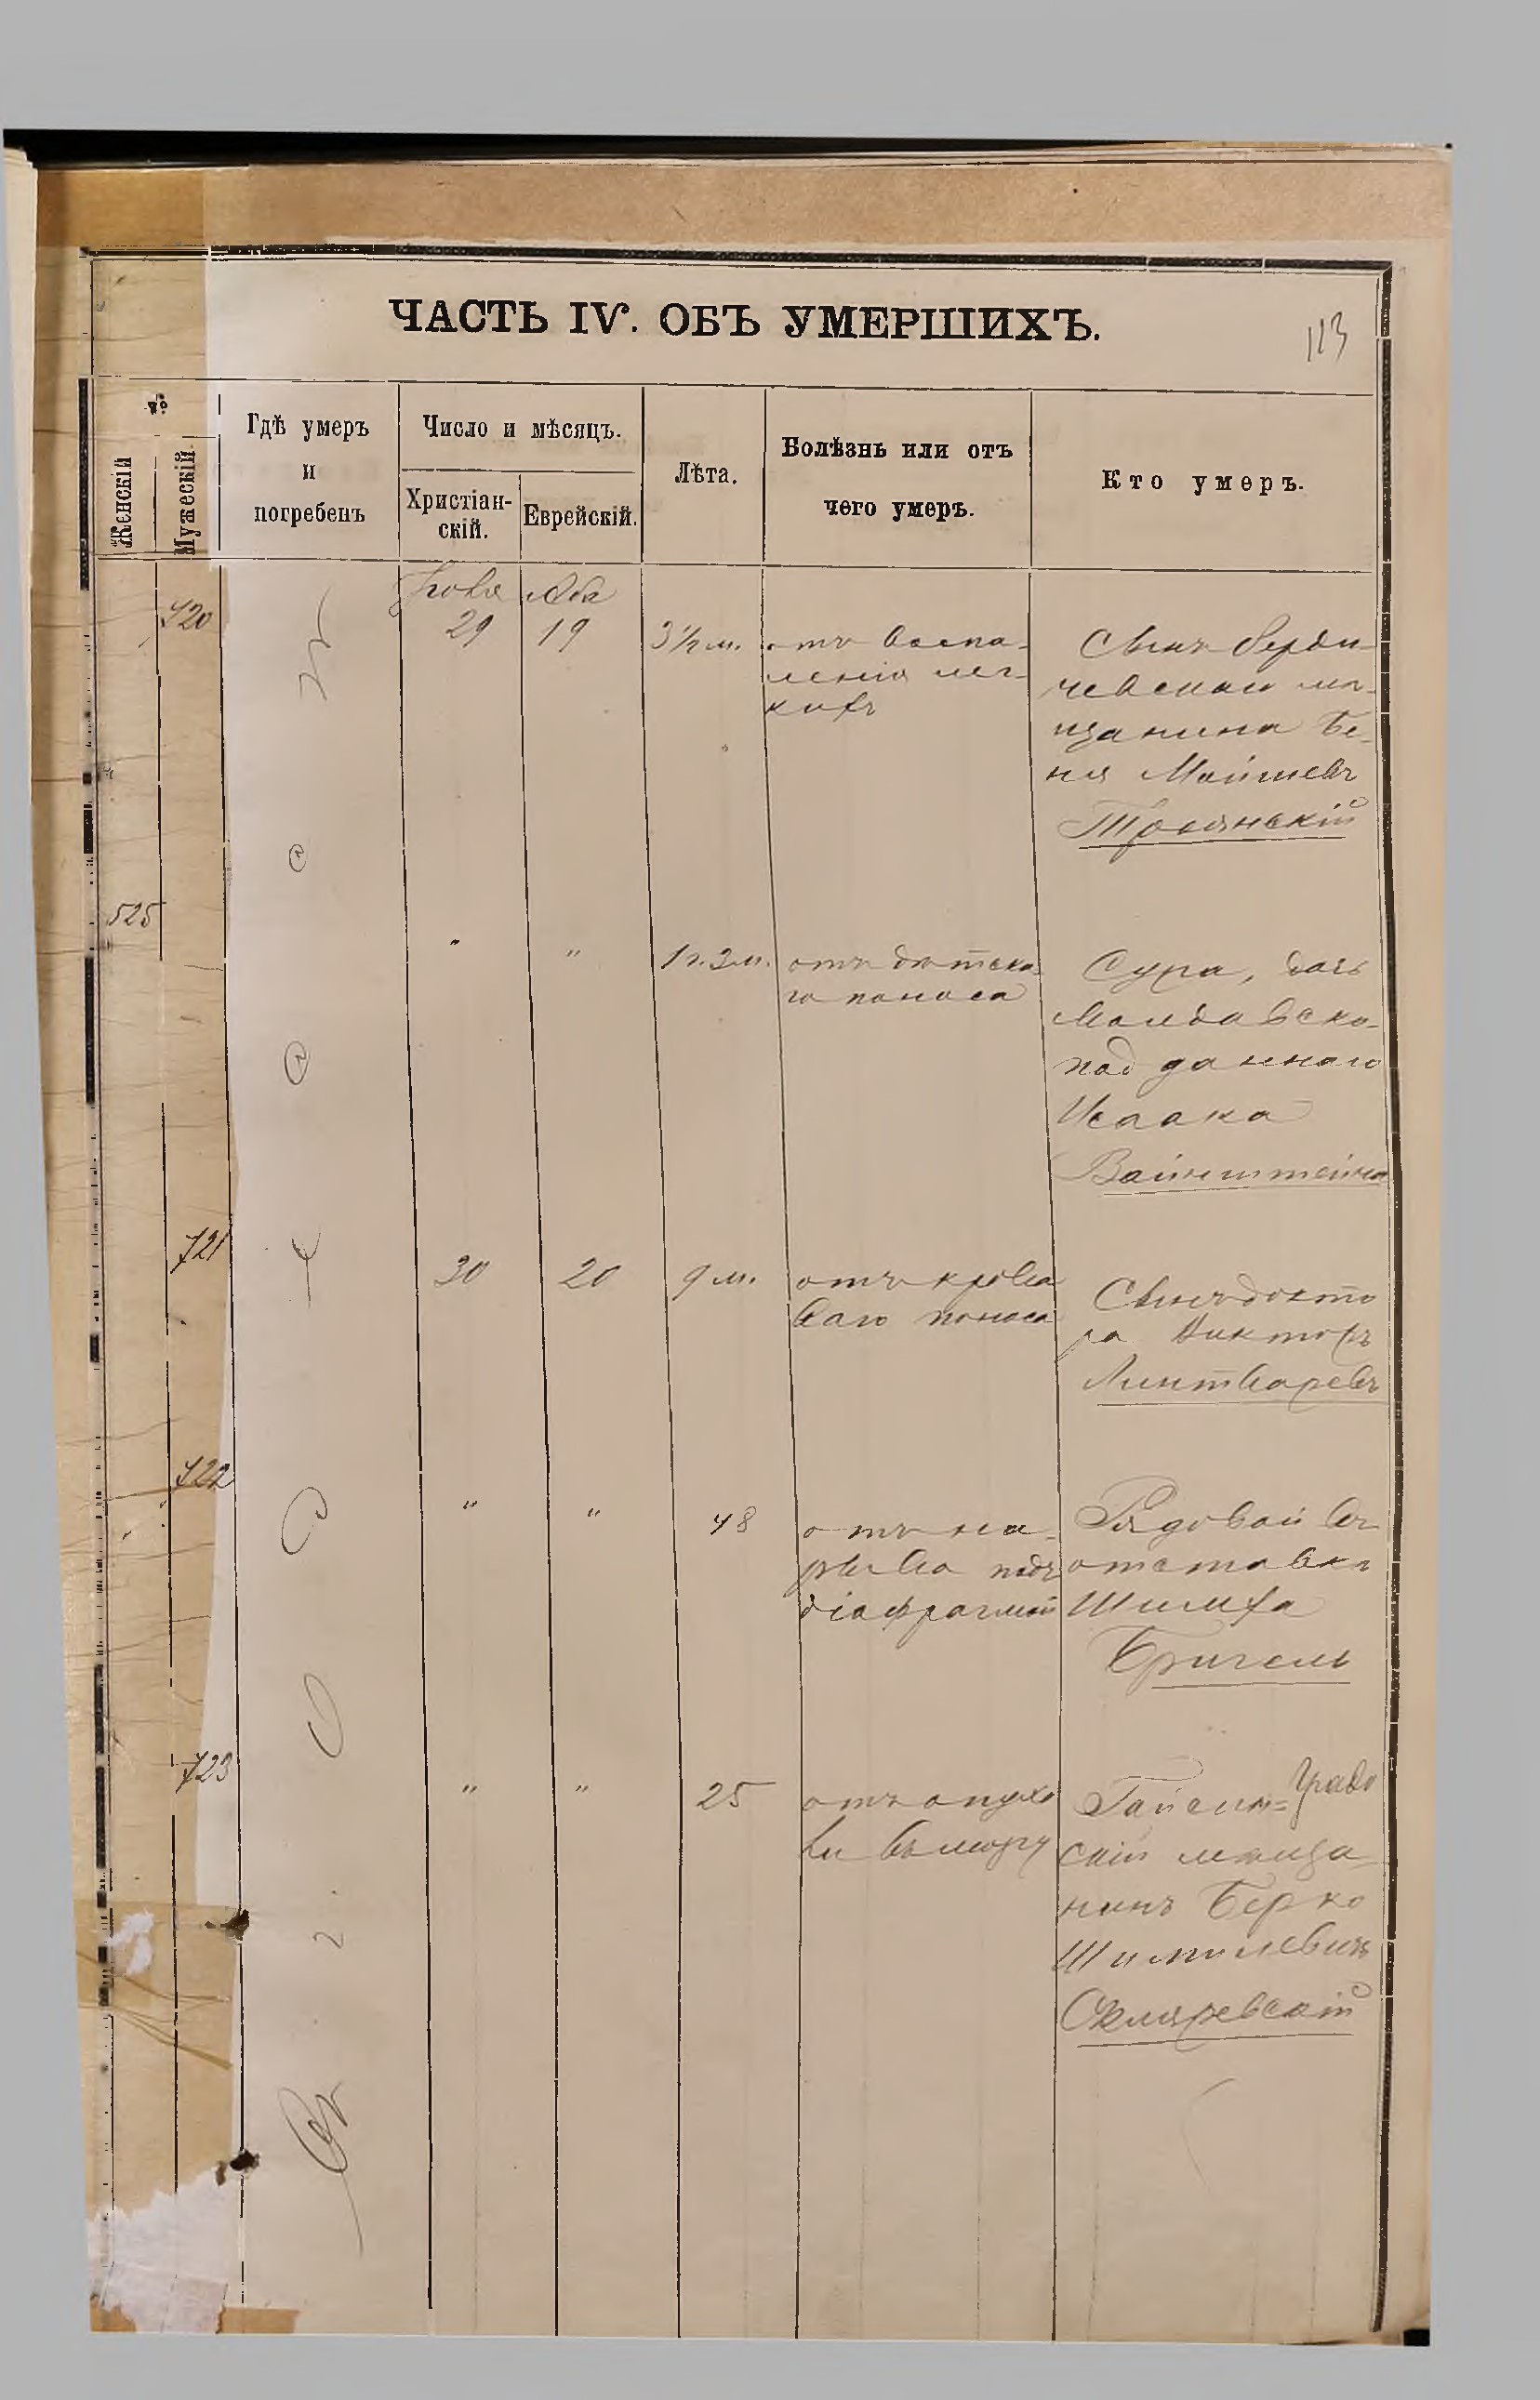 ЧАСТЬ IV. ОБЪ УМЕРШИХЪ.
113
№
Женскій
Мужескій.
Гдѣ умеръ
и
погребенъ
Число и мѣсяцъ.
Христіан-
скій.
Еврейскій.
Лѣта.
Болѣзнь или отъ
чего умеръ.
Кто умеръ.
Іюля Аба
720
29
19
3 1/2 м.
отъ воспа-
ленія лег-
кихъ
Сынъ берди-
чевскаго мѣ-
щанина Бе-
ня Мойшевъ
Троянскій
525
"
"
1 г. 3 м.
отъ дѣтска
го поноса
Сура, дочь
Молдавско-
подданнаго
Исаака
Вайнштейна
721
30
20
9 м.
отъ крова
ваго поноса
Сынъ докто
ра Викторъ
Линтваревъ
722
"
"
48
отъ на-
рыва подъ
діафрагмой
Рядовой въ
отставкѣ
Шимха
Бригель
723
"
"
25
отъ опухо
ли въ мозгу
Гайсин=
градо
скій мѣща
нинъ Берко
Шмилевичъ
Скляревскій